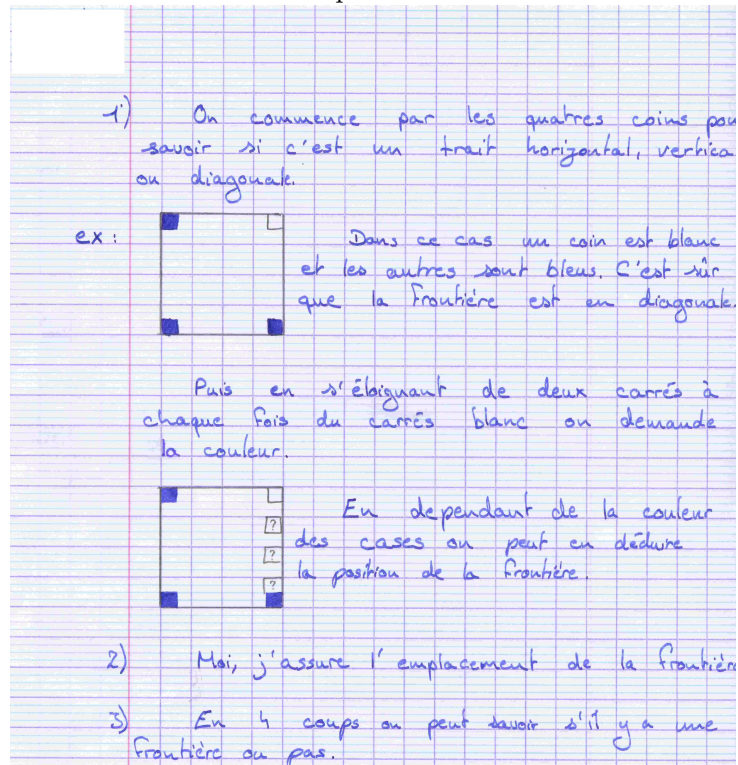 1°) On commence par les quatres coins pou
savoir si c'est un trait horizontal, vertica
ou diagonale.
ex : Dans ce cas un coin est blanc
et les autres sont bleus. C'est sûr
que la frontière est en diagonale.
Puis en s'éloignant de deux carrés à
chaque fois du carrés blanc on demande
la couleur.
En dependant de la couleur
?
des cases on peut en déduire
?
la position de la frontière.
?
2) Moi, j'assure l'emplacement de la frontière
3) En 4 coups on peut savoir s'il y a une
frontière ou pas.